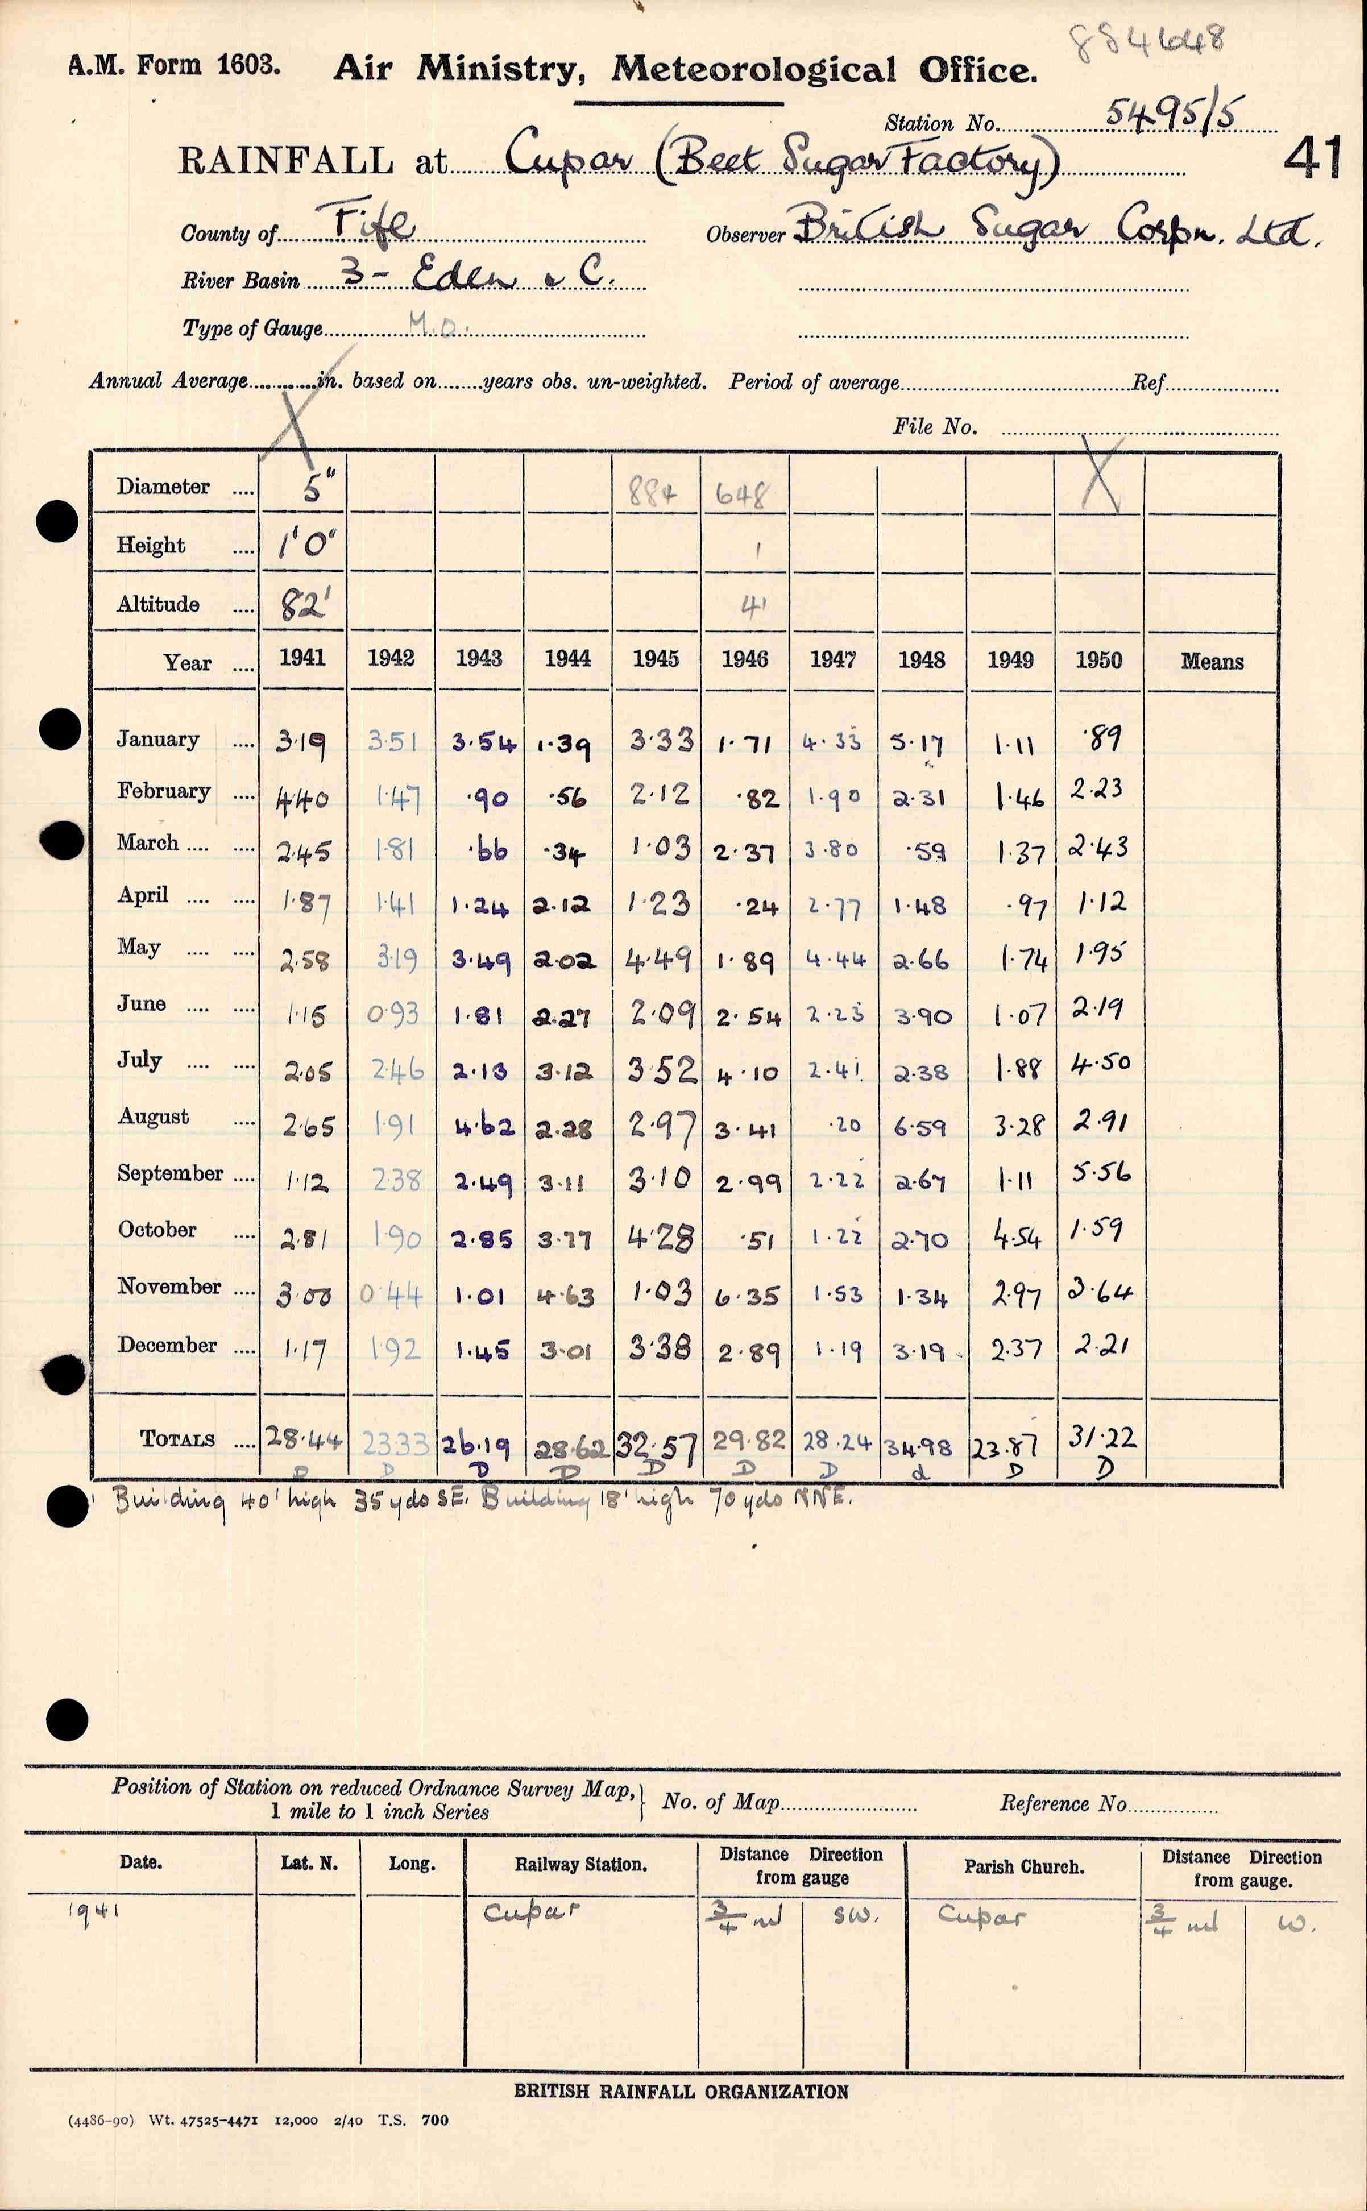 884648
A.M. Form 1603. Air Ministry, Meteorological Office.
Station No. 5495/5
RAINFALL at Cupar (Beet Sugar Factory) 41
County of Fife Observer British Sugar Corpn. Ltd.
River Basin 3- Eden & C.
Type of Gauge M.O.
Annual Average in. based on years obs. un-weighted. Period of average Ref
File No.
Diameter 5" 884 648
Height 1'0" 1
Altitude 82' 41
Year 1941 1942 1943 1944 1945 1946 1947 1948 1949 1950 Means
January 3.19 3.51 3.54 1.39 3.33 1.71 4.33 5.17 1.11 .89
February 4.40 1.47 .90 .56 2.12 .82 1.90 2.31 1.46 2.23
March 2.45 1.81 .66 .34 1.03 2.37 3.80 .59 1.37 2.43
April 1.87 1.41 1.24 2.12 1.23 .24 2.77 1.48 .97 1.12
May 2.58 3.19 3.49 2.02 4.49 1.89 4.44 2.66 1.74 1.95
June 1.15 0.93 1.81 2.27 2.09 2.54 2.23 3.90 1.07 2.19
July 2.05 2.46 2.13 3.12 3.52 4.10 2.41 2.38 1.88 4.50
August 2.65 1.91 4.62 2.28 2.97 3.41 .20 6.59 3.28 2.91
September 1.12 2.38 2.49 3.11 3.10 2.99 2.22 2.67 1.11 5.56
October 2.81 1.90 2.85 3.77 4.28 .51 1.22 2.70 4.54 1.59
November 3.00 0.44 1.01 4.63 1.03 6.35 1.53 1.34 2.97 3.64
December 1.17 1.92 1.45 3.01 3.38 2.89 1.19 3.19 2.37 2.21
TOTALS 28.44 23.33 26.19 28.62 32.57 29.82 28.24 34.98 23.87 31.22
D D D D D D D d D D
Building 40' high 35 yds SE. Building 18' high 70 yds NNE.
Position of Station on reduced Ordnance Survey Map,
1 mile to 1 inch Series } No. of Map Reference No
Date. Lat. N. Long. Railway Station. Distance Direction from gauge Parish Church. Distance Direction from gauge.
1941 Cupar 3/4 ml SW. Cupar 3/4 ml W.
BRITISH RAINFALL ORGANIZATION
(4486-90) Wt. 47525-4471 12,000 2/40 T.S. 700